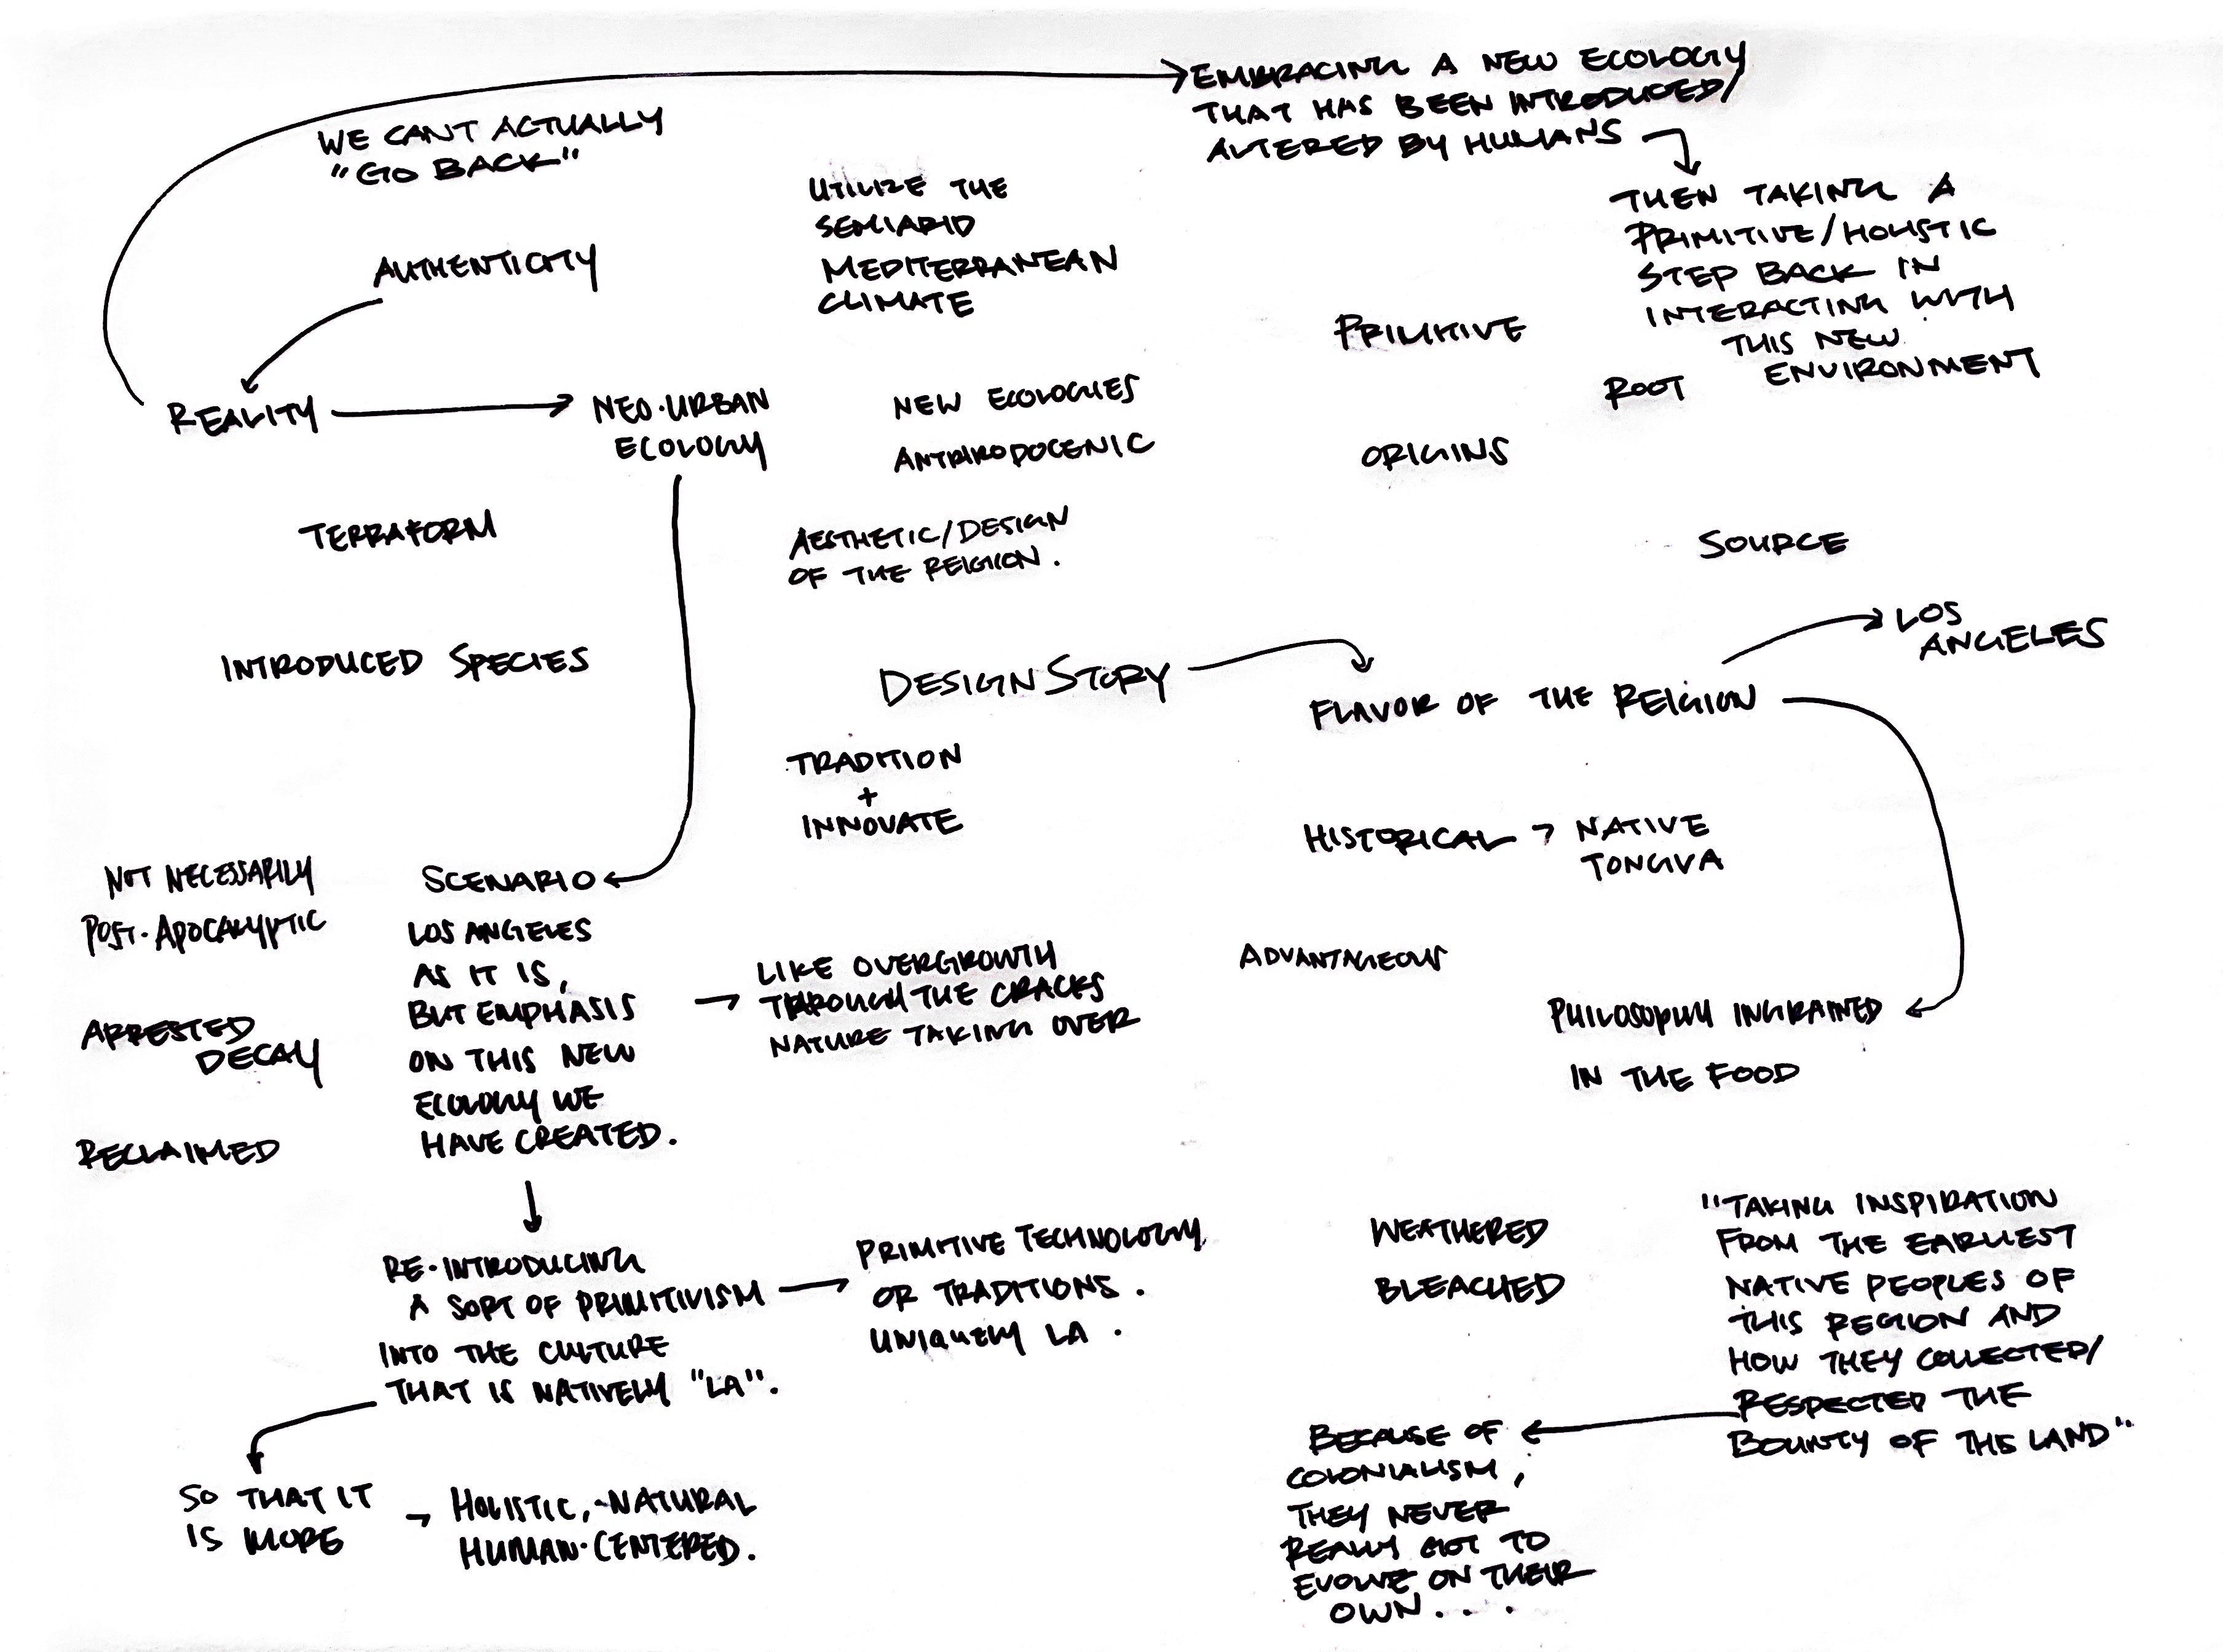 EMBRACING A NEW ECOLOGY
THAT HAS BEEN INTRODUCED/
ALTERED BY HUMANS
WE CANT ACTUALLY
"GO BACK"
UTILIZE THE
SEMIARID
MEDITERRANEAN
CLIMATE
THEN TAKING A
PRIMITIVE/HOLISTIC
STEP BACK IN
INTERACTING WITH
THIS NEW
ENVIRONMENT
AUTHENTICITY
PRIMITIVE
ROOT
REALITY
NEO-URBAN
ECOLOGY
NEW ECOLOGIES
ANTHRODOGENIC
ORIGINS
TERRAFORM
AESTHETIC/DESIGN
OF THE REIGION.
SOURCE
INTRODUCED SPECIES
DESIGN STORY
FLAVOR OF THE REIGION
LOS
ANGELES
TRADITION
+
INNOVATE
HISTORICAL → NATIVE
TONGVA
NOT NECESSARILY
POST-APOCALYPTIC
ARRESTED
DECAY
RECLAIMED
SCENARIO
LOS ANGELES
AS IT IS,
BUT EMPHASIS
ON THIS NEW
ECOLOGY WE
HAVE CREATED.
LIKE OVERGROWTH
THROUGH THE CRACKS
NATURE TAKING OVER
ADVANTAGEOUS
PHILOSOPHY INGRAINED
IN THE FOOD
RE-INTRODUCING
A SORT OF PRIMITIVISM
INTO THE CULTURE
THAT IS NATIVELY "LA".
PRIMITIVE TECHNOLOGY
OR TRADITIONS.
UNIQUELY LA.
WEATHERED
BLEACHED
"TAKING INSPIRATION
FROM THE EARLIEST
NATIVE PEOPLES OF
THIS REGION AND
HOW THEY COLLECTED/
RESPECTED THE
BOUNTY OF THE LAND"
SO THAT IT
IS MORE
HOLISTIC, -NATURAL
HUMAN-CENTERED.
BECAUSE OF
COLONIALISM,
THEY NEVER
REALLY GOT TO
EVOLVE ON THEIR
OWN....